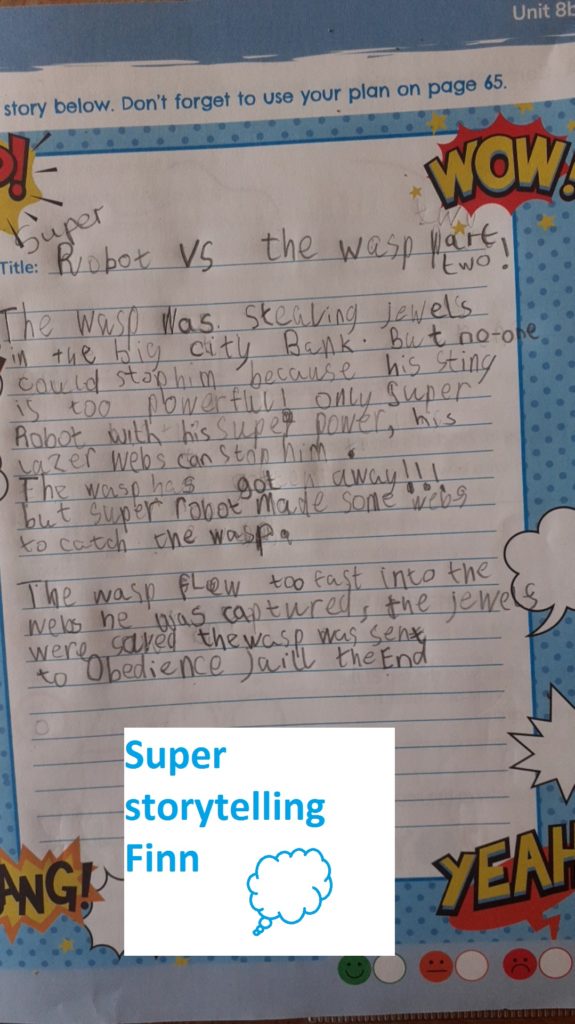 Unit 8b
story below. Don't forget to use your plan on page 65.
WOW!
Super
Title: Robot vs the wasp part
two!
The wasp was. stealing jewels
in the big city Bank. But no-one
could stop him because his sting
is too powerfull only Super
Robot with his super power, his
Lazer webs can stop him.
The wasp has gotten away!!!
but super robot made some webs
to catch the wasp.
The wasp flew too fast into the
webs he was captured, the jewels
were saved the wasp was sent
to Obedience Jaill the End
Super
storytelling
Finn
ANG!
YEAH